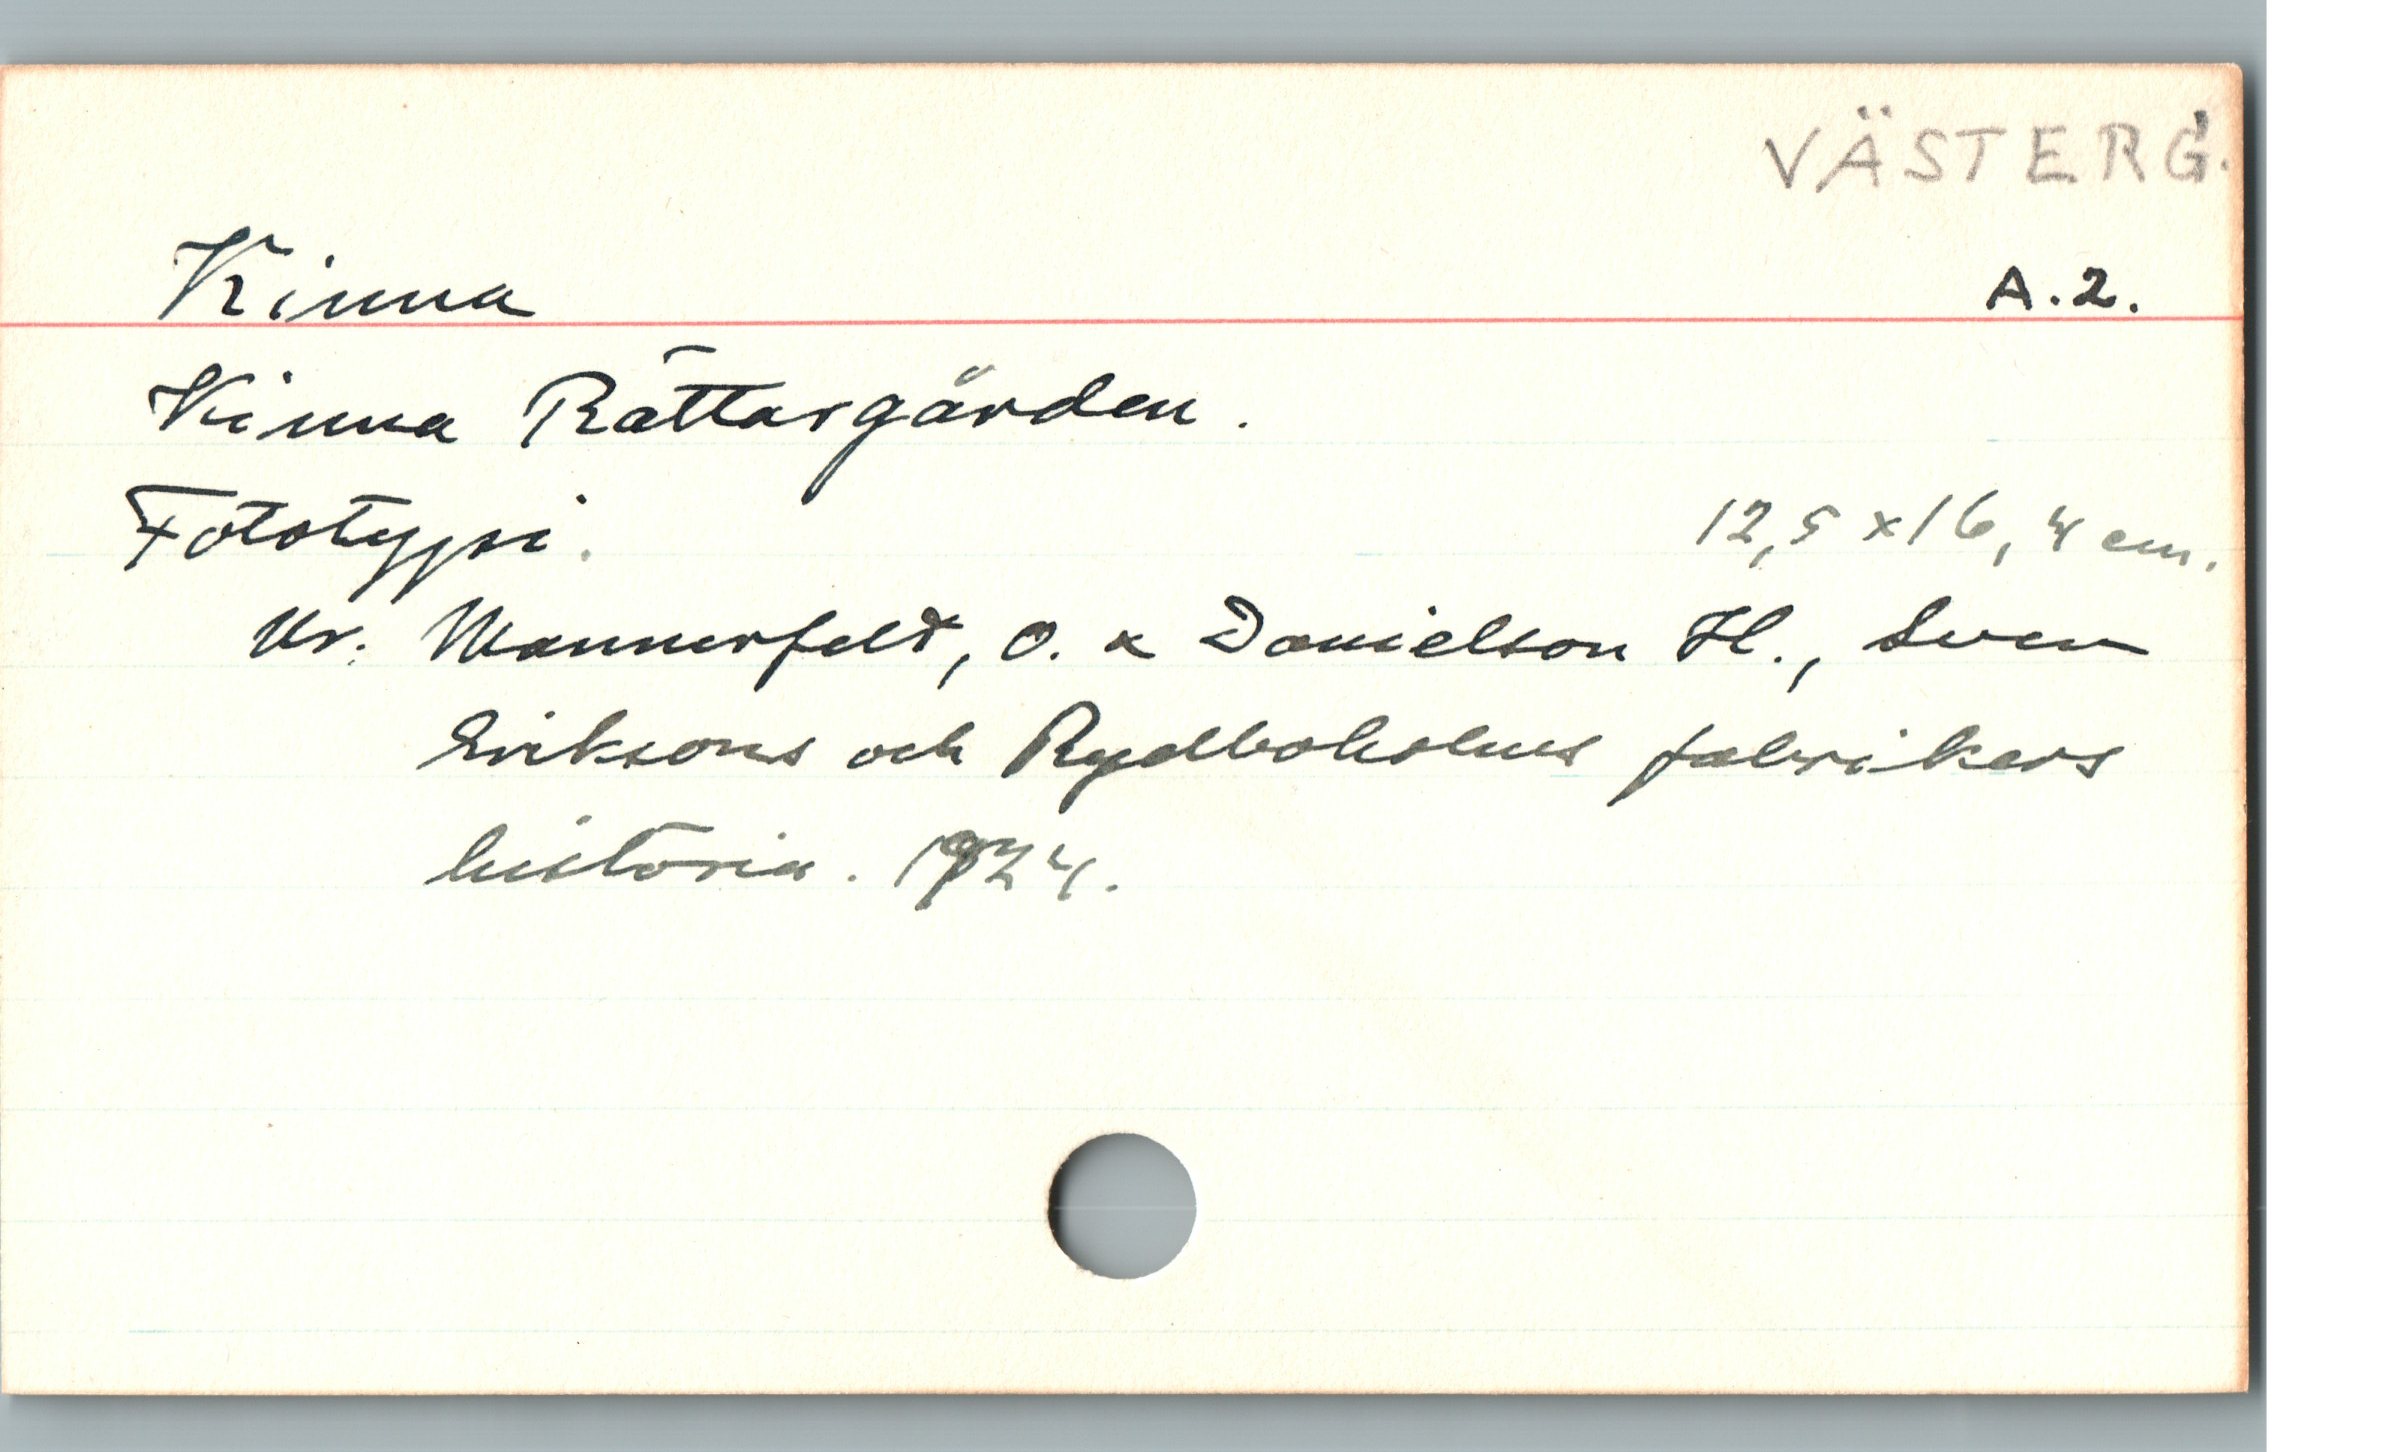 VÄSTERG.
Kinna A.2.
Kinna Rättargården.
Fototypi. 12,5 x 16,4 cm.
Ur: Mannerfelt, O. & Danielson H., Sven
Eriksons och Rydboholms fabrikers
historia. 1924.